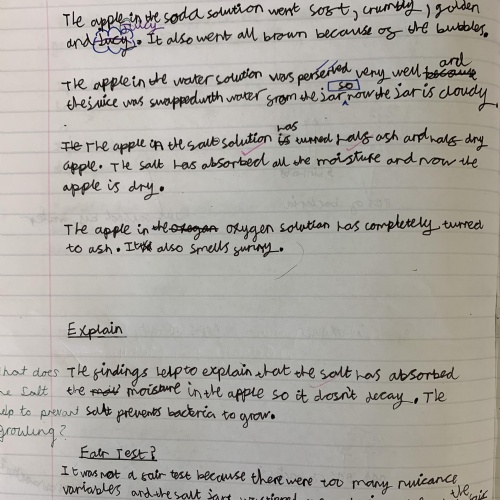 The apple in the soda solution went soft, crumbly, golden
and juicy. It also went all brown because of the bubbles.
The apple in the water solution was perserved very well because and
the juice was swapped with water from the jar so now the jar is cloudy.
The The apple in the salt solution is has turned half ash and half dry
apple. The salt has absorbed all the moisture and now the
apple is dry.
The apple in the oxegan oxygen solution has completely turned
to ash. It also smells funny.
Explain
what does The findings help to explain that the salt has absorbed
the salt the moisture in the apple so it dosn't decay. The
help to prevent salt prevents bacteria to grow.
growing?
Fair Test?
It was not a fair test because there were too many nuicance
variables and the salt jars